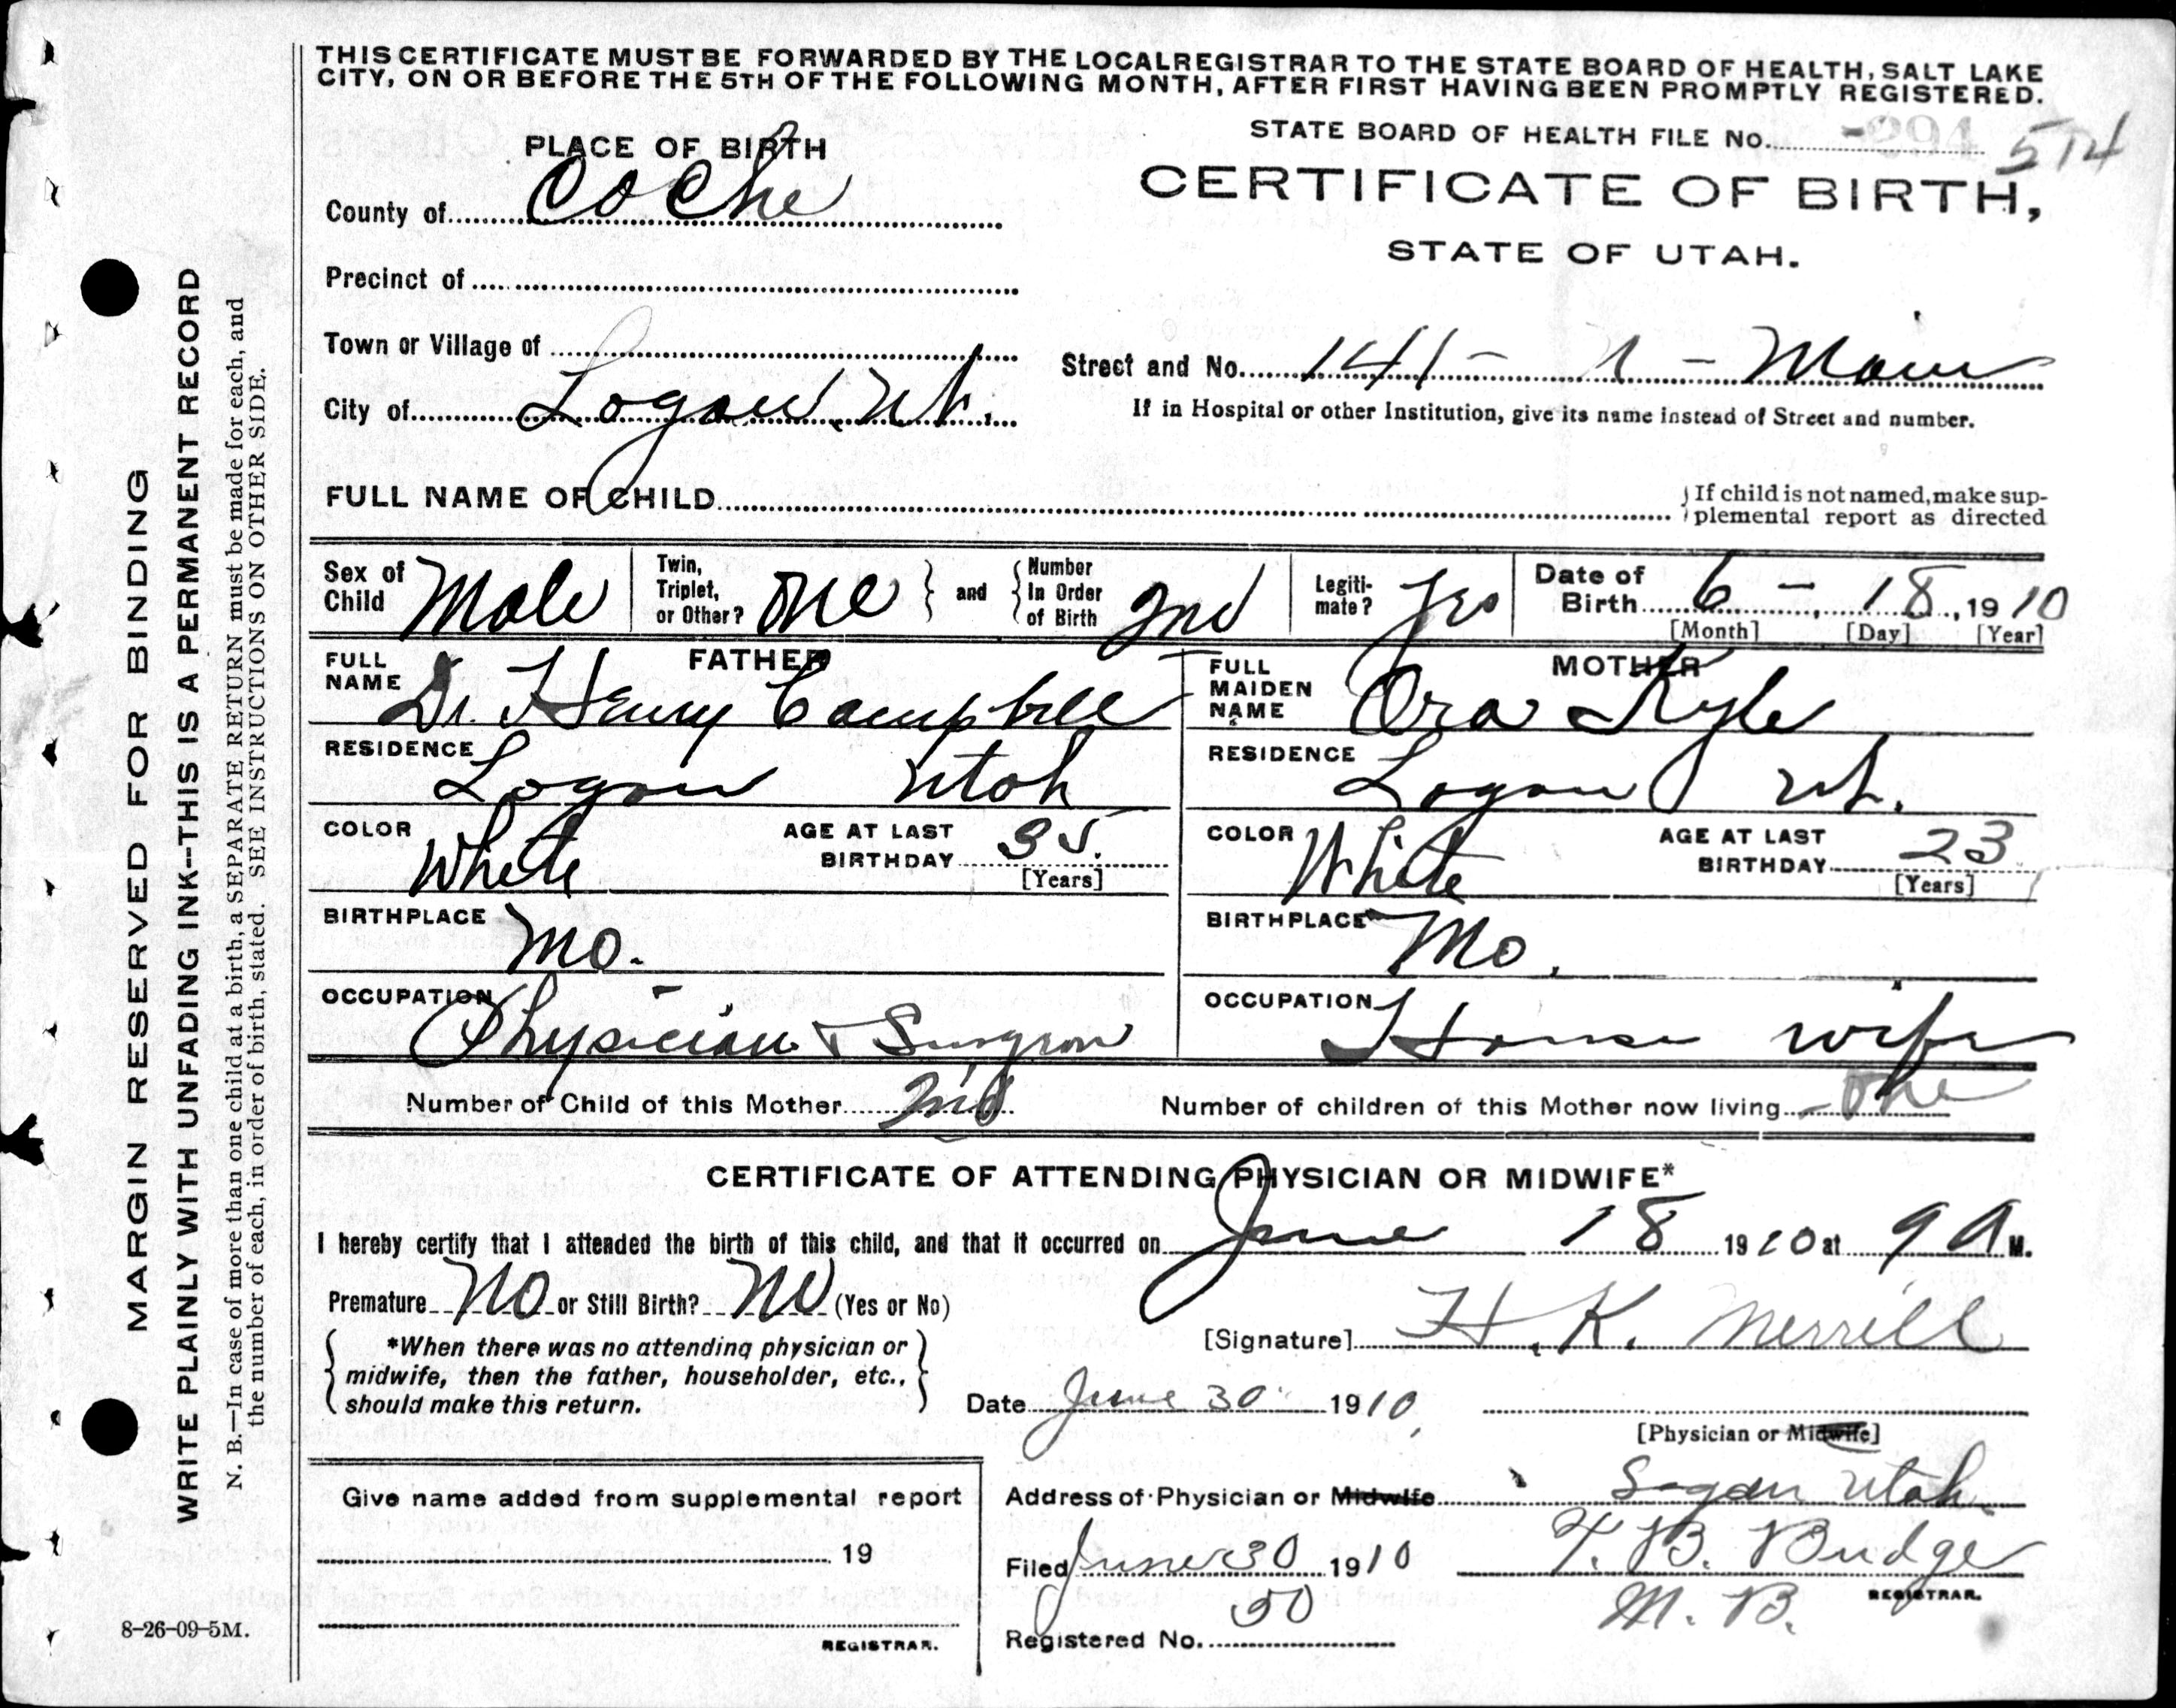 THIS CERTIFICATE MUST BE FORWARDED BY THE LOCAL REGISTRAR TO THE STATE BOARD OF HEALTH, SALT LAKE
CITY, ON OR BEFORE THE 5TH OF THE FOLLOWING MONTH, AFTER FIRST HAVING BEEN PROMPTLY REGISTERED.
PLACE OF BIRTH
STATE BOARD OF HEALTH FILE No. 294 514
CERTIFICATE OF BIRTH,
STATE OF UTAH.
County of Cache
Precinct of
Town or Village of
City of Logan, Ut.
Street and No. 141 - N - Main
If in Hospital or other Institution, give its name instead of Street and number.
FULL NAME OF CHILD
If child is not named, make sup-
plemental report as directed
Sex of Child Male
Twin, Triplet, or Other? One
and
Number In Order of Birth 2nd
Legiti-mate? Yes
Date of Birth 6 - , 18 , 1910
[Month] [Day] [Year]
FATHER
FULL NAME Dr. Henry Campbell
RESIDENCE Logan Utah
COLOR White
AGE AT LAST BIRTHDAY 35.
[Years]
BIRTHPLACE Mo.
OCCUPATION Physician & Surgeon
MOTHER
FULL MAIDEN NAME Ora Kyle
RESIDENCE Logan Ut.
COLOR White
AGE AT LAST BIRTHDAY 23
[Years]
BIRTHPLACE Mo.
OCCUPATION House wife
Number of Child of this Mother 2nd
Number of children of this Mother now living - One
CERTIFICATE OF ATTENDING PHYSICIAN OR MIDWIFE*
I hereby certify that I attended the birth of this child, and that it occurred on June 18 1910 at 9 A M.
Premature No or Still Birth? No (Yes or No)
*When there was no attending physician or
midwife, then the father, householder, etc.,
should make this return.
[Signature] H. K. Merrill
Date June 30 1910,
[Physician or Midwife]
Give name added from supplemental report
19
REGISTRAR.
Address of Physician or Midwife Logan Utah
Filed June 30 1910
T. B. Budge
M. D. REGISTRAR.
Registered No. 50
8-26-09-5M.
MARGIN RESERVED FOR BINDING
WRITE PLAINLY WITH UNFADING INK--THIS IS A PERMANENT RECORD
N. B.—In case of more than one child at a birth, a SEPARATE RETURN must be made for each, and
the number of each, in order of birth, stated. SEE INSTRUCTIONS ON OTHER SIDE.